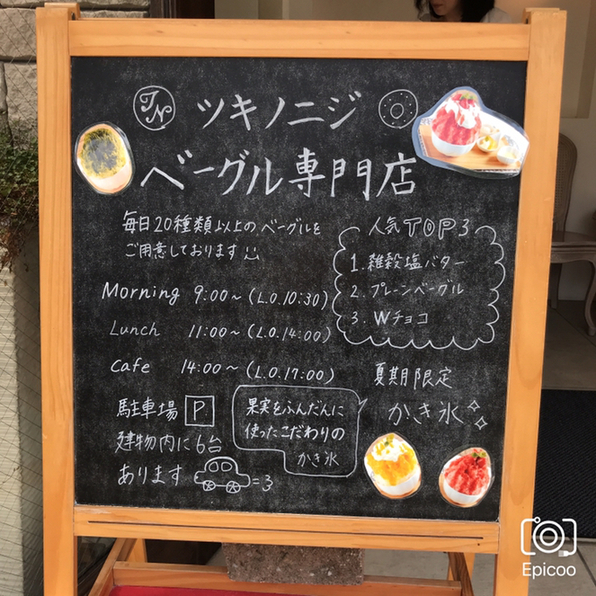 TN
ツキノニジ
ベーグル専門店
毎日20種類以上のベーグルを
ご用意しております
人気TOP3
1. 雑穀塩バター
2. プレーンベーグル
3. Wチョコ
Morning 9:00～(L.O.10:30)
Lunch 11:00～(L.O.14:00)
Cafe 14:00～(L.O.17:00)
夏期限定
かき氷
駐車場 P
建物内に6台
あります
果実をふんだんに
使ったこだわりの
かき氷
Epicoo